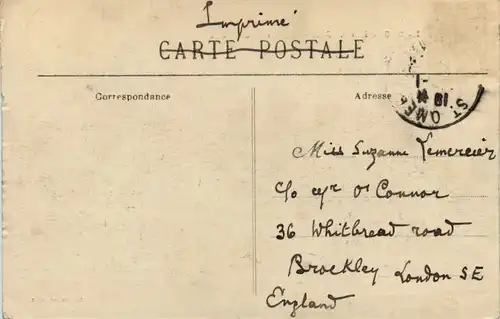 Imprimé
CARTE POSTALE
Correspondance
Adresse
ST OMER
Miss Suzanne Lemercier
c/o O'Connor
36 Whitbread road
Brockley London SE
England